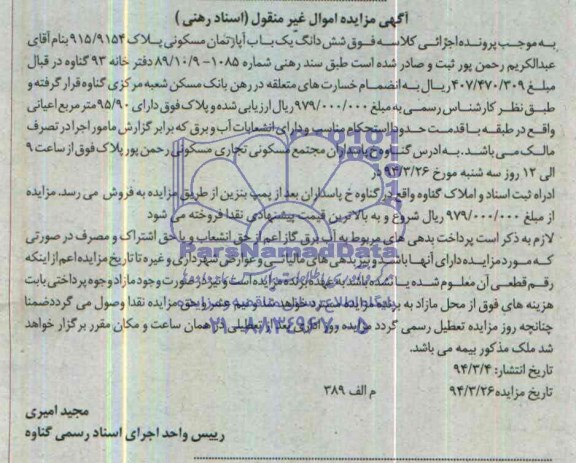 آگهی مزایده اموال غیر منقول (اسناد رهنی)
به موجب پرونده اجرائی کلاسه فوق شش دانگ یک باب آپارتمان مسکونی پلاک ۹۱۵/۹۱۵۴ بنام آقای
عبدالکریم رحمن پور ثبت و صادر شده است طبق سند رهنی شماره ۱۰۸۵-۸۹/۱۰/۹ دفتر خانه ۹۳ گناوه در قبال
مبلغ ۴۰۷/۴۷۰/۳۰۹ ریال به انضمام خسارت های متعلقه در رهن بانک مسکن شعبه مرکزی گناوه قرار گرفته و
طبق نظر کارشناس رسمی به مبلغ ۹۷۹/۰۰۰/۰۰۰ ریال ارزیابی شده و پلاک فوق دارای ۹۵/۹۰ متر مربع اعیانی
واقع در طبقه با قدمت حدود استحکام مناسب و دارای انشعابات آب و برق که برابر گزارش مامور اجرا در تصرف
مالک می باشد. به ادرس گناوه خ پاسداران مجتمع مسکونی تجاری مسکونی رحمن پور پلاک فوق از ساعت ۹
الی ۱۲ روز سه شنبه مورخ ۹۴/۳/۲۶ در
ادراه ثبت اسناد و املاک گناوه واقع در گناوه خ پاسداران بعد از پمپ بنزین از طریق مزایده به فروش می رسد. مزایده
از مبلغ ۹۷۹/۰۰۰/۰۰۰ ریال شروع و به بالاترین قیمت پیشنهادی نقدا فروخته می شود
لازم به ذکر است پرداخت بدهی های مربوط به آب برق گاز اعم از حق انشعاب و یا حق اشتراک و مصرف در صورتی
که مورد مزایده دارای آنها باشد و نیز بدهی های مالیاتی و عوارض شهرداری و غیره تا تاریخ مزایده اعم از اینکه
رقم قطعی آن معلوم شده یا نشده باشد به عهده برنده مزایده است و نیز در صورت وجود مازاد وجوه پرداختی بابت
هزینه های فوق از محل مازاد به برنده مزایده مسترد خواهد شد نیم عشر و حق مزایده نقدا وصول می گردد ضمنا
چنانچه روز مزایده تعطیل رسمی گردد مزایده روز اداری بعد از تعطیلی در همان ساعت و مکان مقرر برگزار خواهد
شد ملک مذکور بیمه می باشد.
تاریخ انتشار: ۹۴/۳/۴
تاریخ مزایده ۹۴/۳/۲۶ م الف ۳۸۹
مجید امیری
رییس واحد اجرای اسناد رسمی گناوه
ParsNamadData